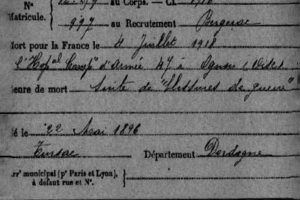 au Corps. — Cl. 1916
Matricule.
997 au Recrutement Bergerac
Mort pour la France le 4 Juillet 1918
à l'Hop^al d'Armée 47 à Ognon (Oise)
Genre de mort Suite de "Blessures de guerre"
Né le 22 Mai 1896
Département Dordogne
Arr^t municipal (p^r Paris et Lyon),
à défaut rue et N°.